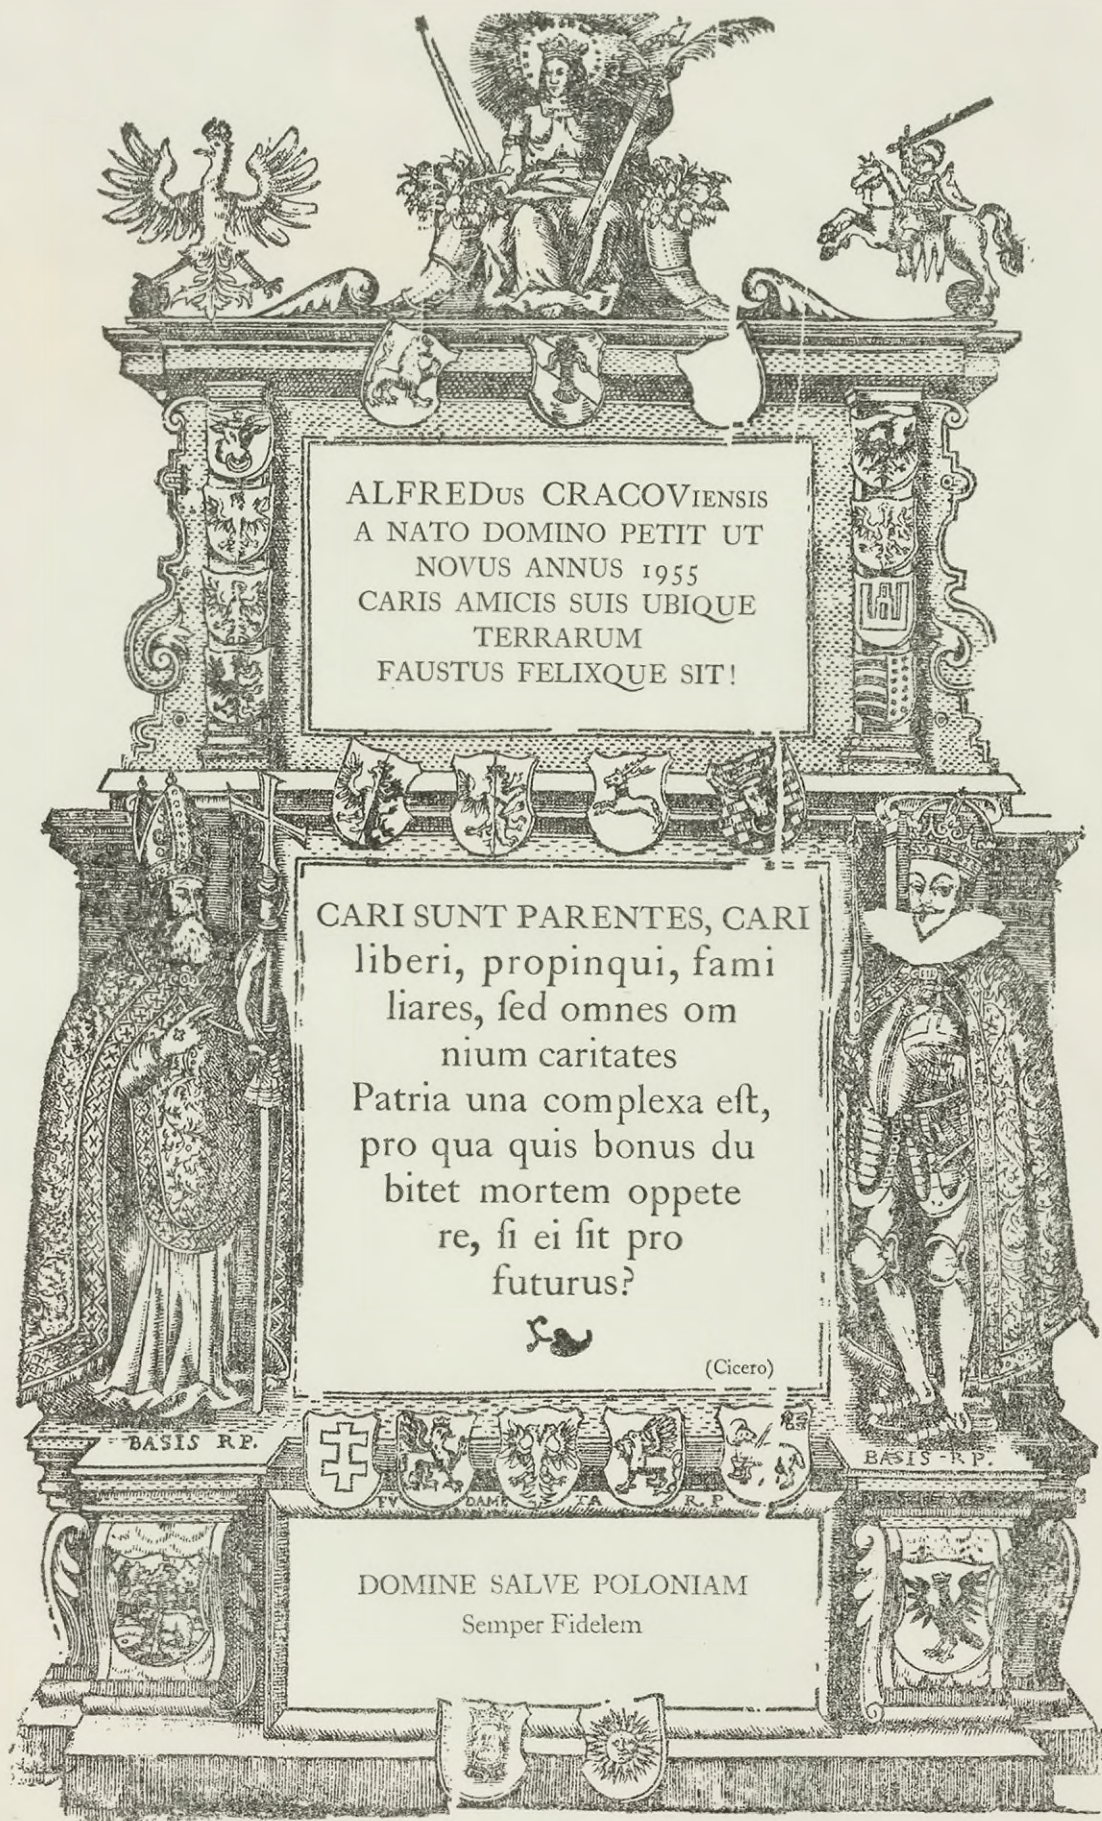 ALFREDus CRACOViensis
A NATO DOMINO PETIT UT
NOVUS ANNUS 1955
CARIS AMICIS SUIS UBIQUE
TERRARUM
FAUSTUS FELIXQUE SIT!
CARI SUNT PARENTES, CARI
liberi, propinqui, fami
liares, ſed omnes om
nium caritates
Patria una complexa eſt,
pro qua quis bonus du
bitet mortem oppete
re, ſi ei ſit pro
futurus?
(Cicero)
BASIS RP.
BASIS-RP.
FV DAM TA R.P
DOMINE SALVE POLONIAM
Semper Fidelem